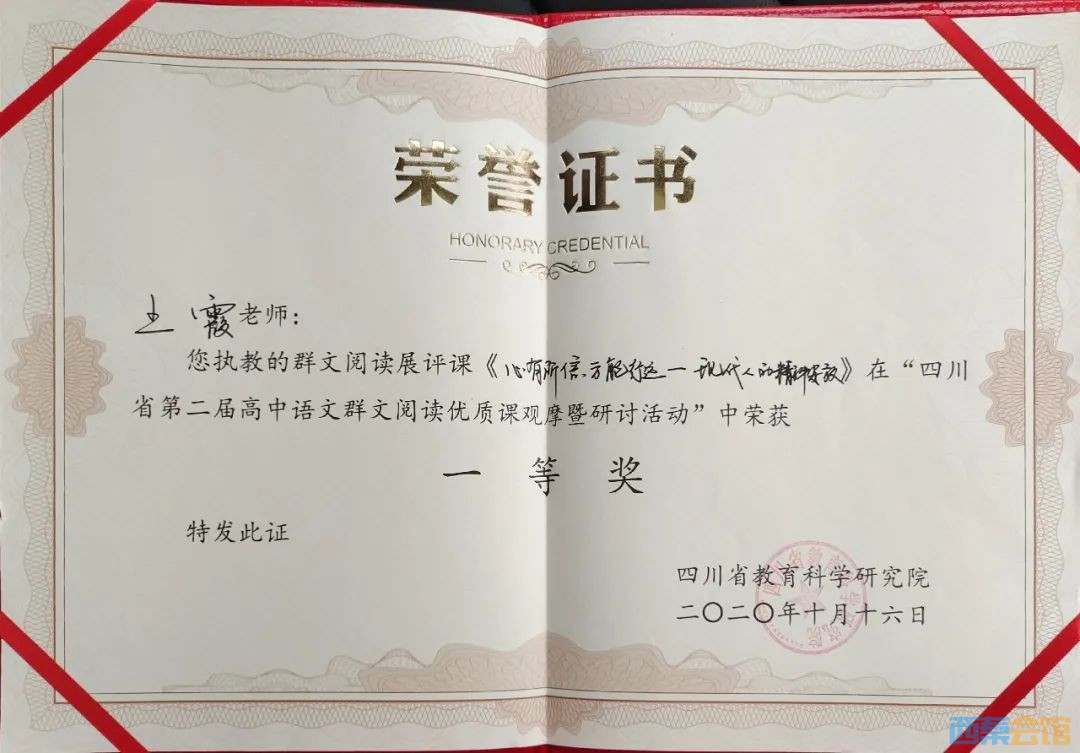 荣誉证书
HONORARY CREDENTIAL
王霞老师：
您执教的群文阅读展评课《心有所信，方能行远—现代人的精神》在“四川
省第二届高中语文群文阅读优质课观摩暨研讨活动”中荣获
一等奖
特发此证
四川省教育科学研究院
二〇二〇年十月十六日
四川省教育科学研究院
西蒙会馆